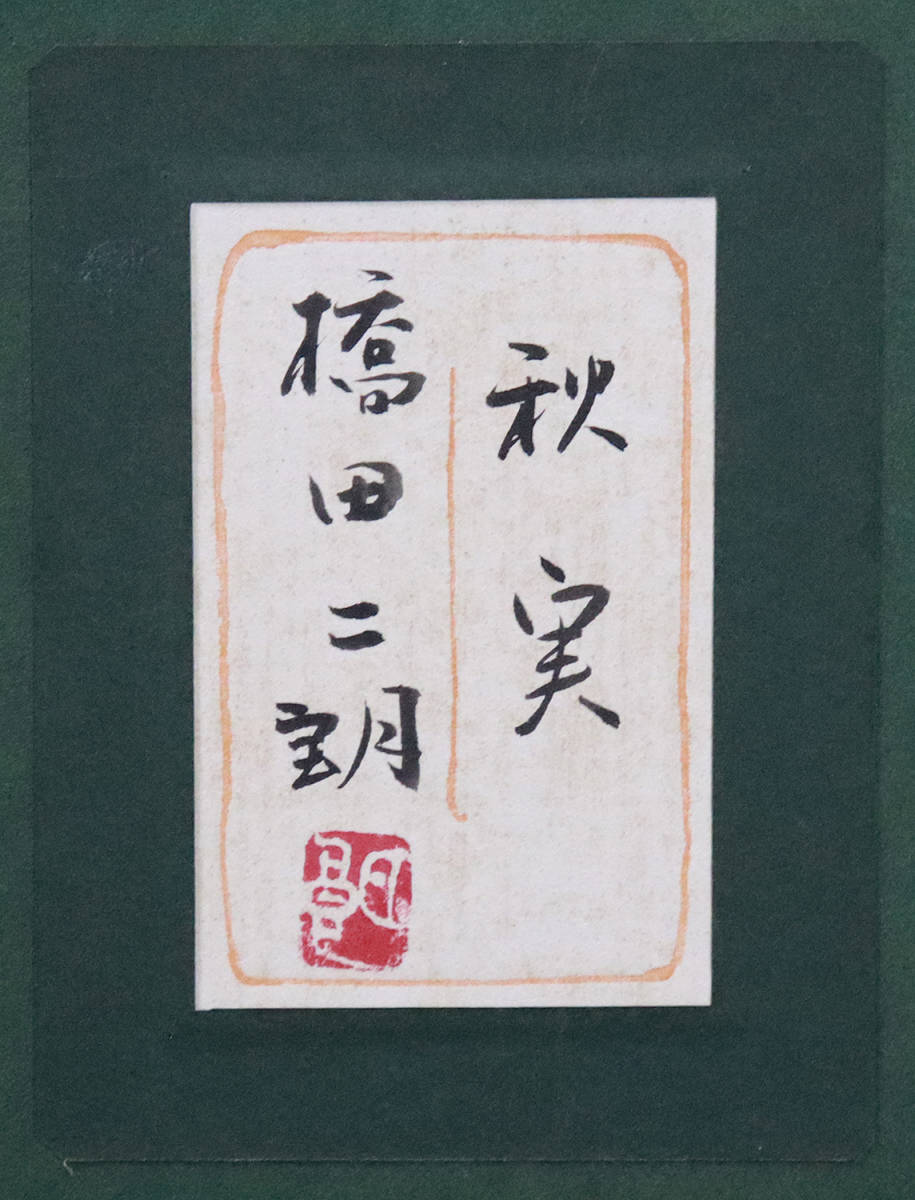 秋実
橋田二朗